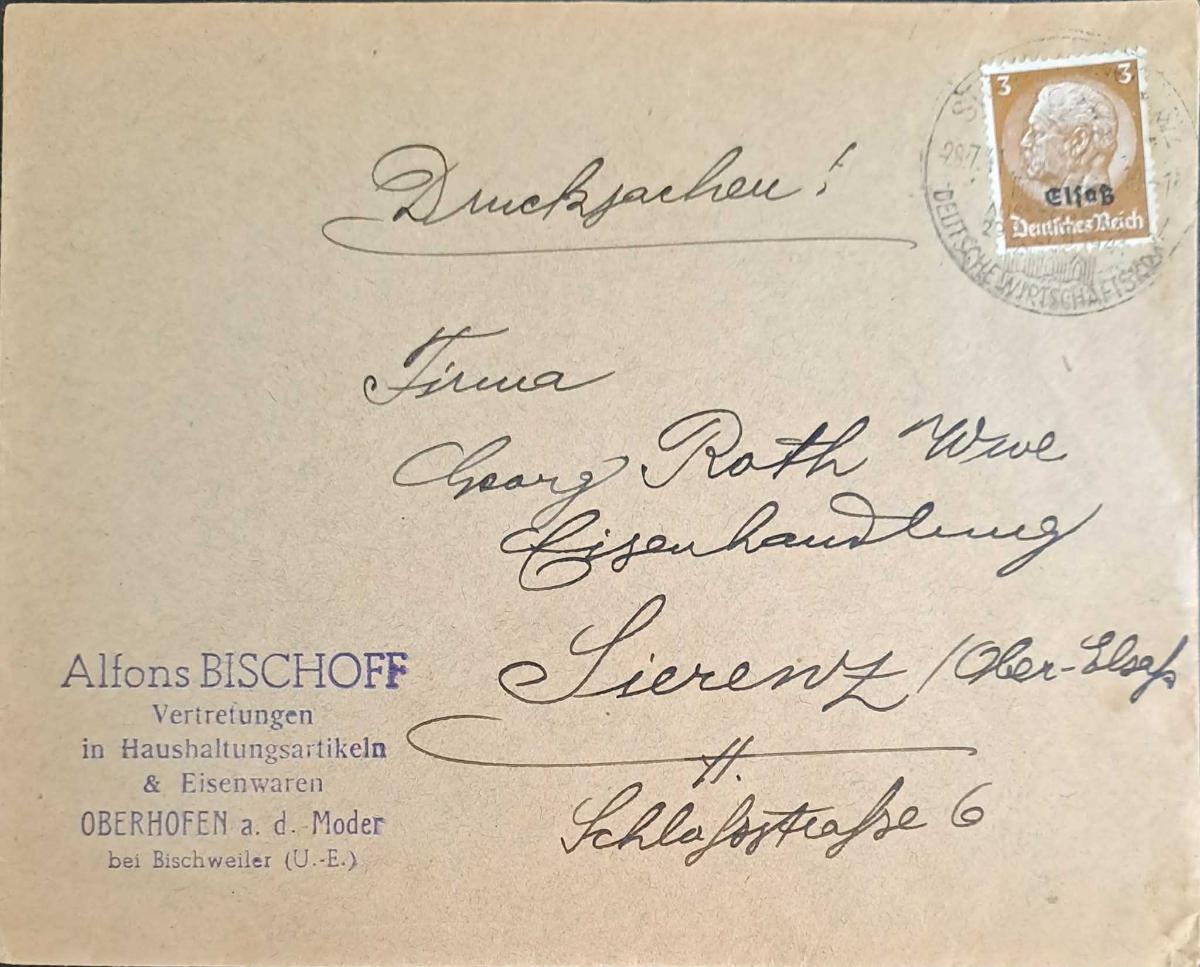 Drucksachen!
3 3
Elsaß
Deutsches Reich
DEUTSCHE WIRTSCHAFTS
Firma
Georg Roth Wwe
Eisenhandlung
Sierenz / Ober-Elsaß
Schloßstraße 6
Alfons BISCHOFF
Vertretungen
in Haushaltungsartikeln
& Eisenwaren
OBERHOFEN a. d. Moder
bei Bischweiler (U.-E.)